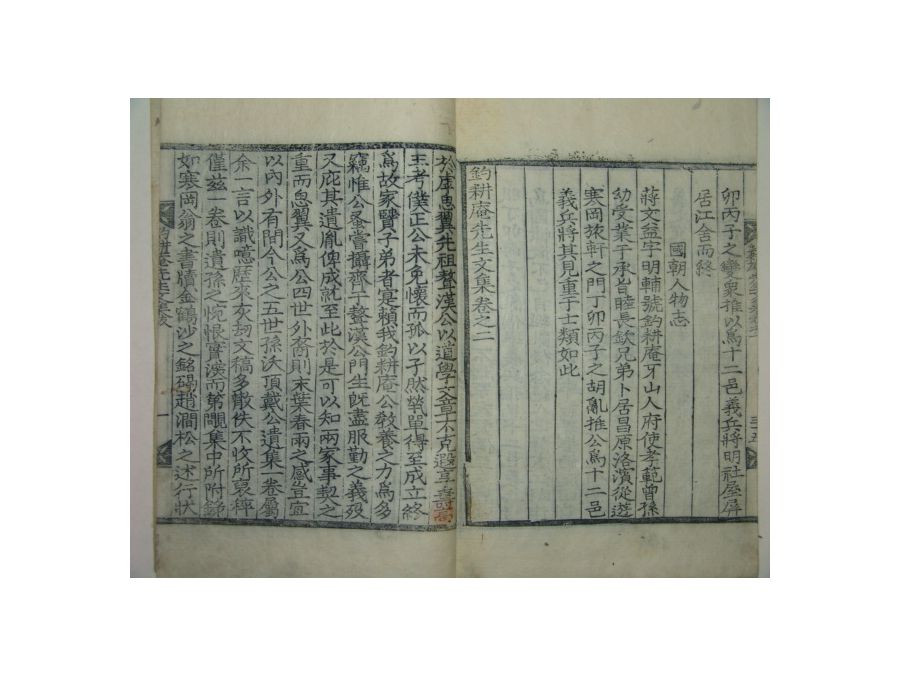 卯丙子之變衆推以爲十二邑義兵將明社屋屛
居江舍而終
國朝人物志
蔣文益字明輔號釣耕庵牙山人府使孝範曾孫
幼受業于承旨睦長欽兄弟卜居昌原洛濱從遊
寒岡旅軒之門丁卯丙子之胡亂推公爲十二邑
義兵將其見重于士類如此
釣耕庵先生文集卷之二
於虖思翼先祖聱漢公以道學文章不克遐享
王考僕正公未免懷而孤以孑然煢單得至成立終
爲故家賢子弟者寔賴我釣耕庵公敎養之力爲多
竊惟公蚤嘗攝齊于聱漢公門生旣盡服勤之義歿
又庇其遺胤俾成就至此於是可以知兩家事契之
重而思翼又爲公四世外裔則末葉春雨之感宜
以內外有間今公之五世孫沃頂戴公遺集一卷屬
余一言以識噫歷來灰刼文稿多散佚不收所裒稡
僅玆一卷則遺孫之怳恨實深而第覵集中所附錄
如寒岡翁之書牘金鶴沙之銘碣趙澗松之述行狀